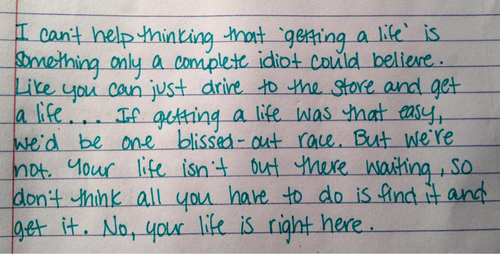 I can't help thinking that 'getting a life' is
something only a complete idiot could believe.
Like you can just drive to the store and get
a life... If getting a life was that easy,
we'd be one blissed-out race. But we're
not. Your life isn't out there waiting, so
don't think all you have to do is find it and
get it. No, your life is right here.